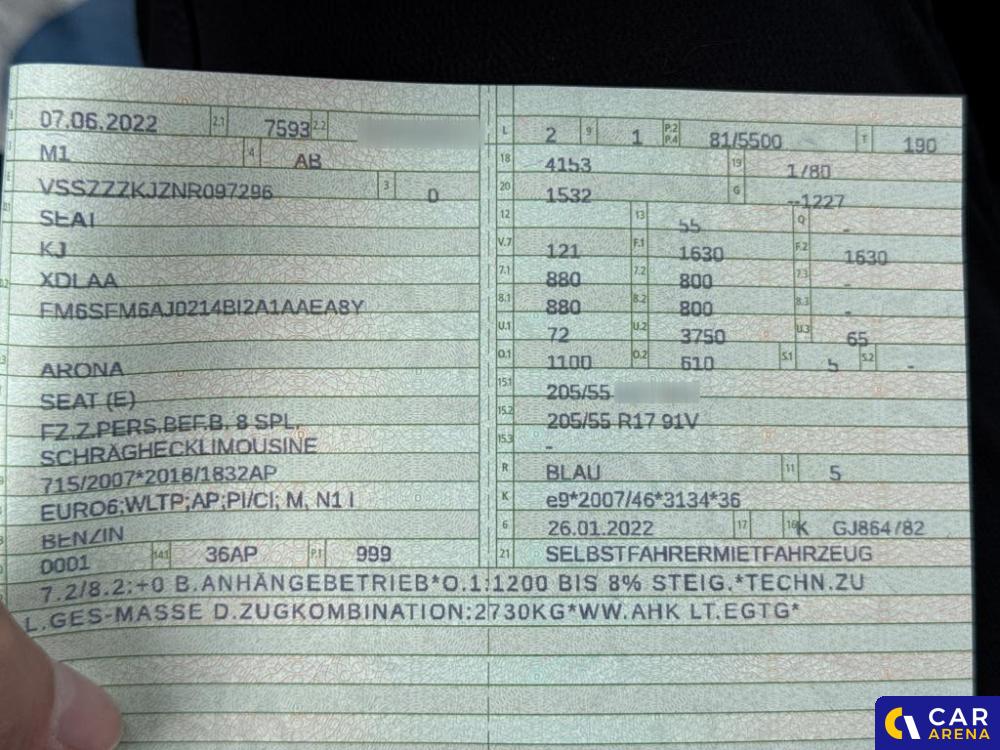 07.06.2022 2.1 7593 2.2
M1 4 AB
VSSZZZKJZNR097296 3 0
SEAT
KJ
XDLAA
FM6SFM6AJ0214BI2A1AAEA8Y
ARONA
SEAT (E)
FZ.Z.PERS.BEF.B. 8 SPL.
SCHRÄGHECKLIMOUSINE
715/2007*2018/1832AP
EURO6;WLTP;AP;PI/CI; M, N1 I
BENZIN
0001 14.1 36AP P.1 999
L 2 9 1 P.2 P.4 81/5500 T 190
18 4153 19 1780
20 1532 G --1227
12 13 55 Q -
V.7 121 F.1 1630 F.2 1630
7.1 880 7.2 800 7.3 -
8.1 880 8.2 800 8.3 -
U.1 72 U.2 3750 U.3 65
O.1 1100 O.2 610 S.1 5 S.2 -
15.1 205/55
15.2 205/55 R17 91V
15.3 -
R BLAU 11 5
K e9*2007/46*3134*36
6 26.01.2022 17 K 16 GJ864782
21 SELBSTFAHRERMIETFAHRZEUG
7.2/8.2:+0 B.ANHÄNGEBETRIEB*O.1:1200 BIS 8% STEIG.*TECHN.ZU
L.GES-MASSE D.ZUGKOMBINATION:2730KG*WW.AHK LT.EGTG*
CAR
ARENA